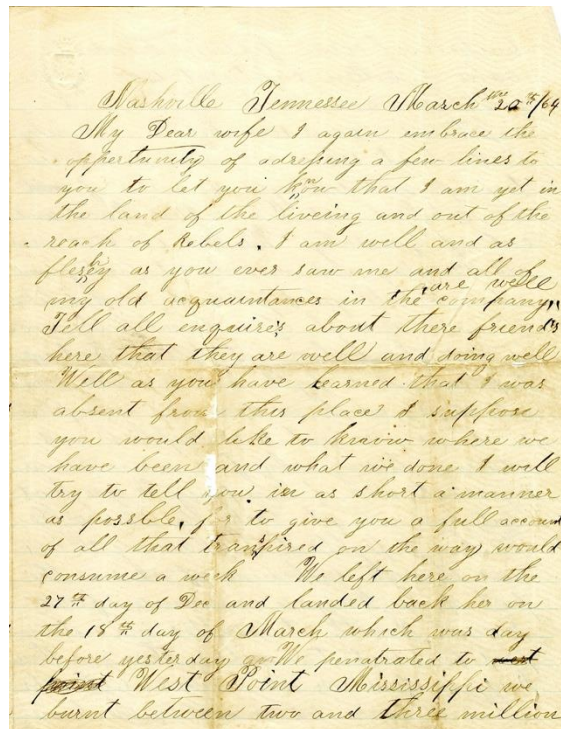 Nashville Tennessee March the 20th/64
My Dear wife I again embrace the
opportunity of adressing a few lines to
you to let you know that I am yet in
the land of the liveing and out of the
reach of Rebels. I am well and as
fleshy as you ever saw me and all of
my old acquaintances in the company are well
Tell all enquires about there friends
here that they are well and doing well
Well as you have learned that I was
absent from this place I suppose
you would like to know where we
have been and what we done I will
try to tell you in as short a manner
as possble, for to give you a full account
of all that transpired on the way would
consume a week We left here on the
27th day of Dec and landed back her on
the 18th day of March which was day
before yesterday We penatrated to west
point West Point Mississippi we
burnt between two and three million